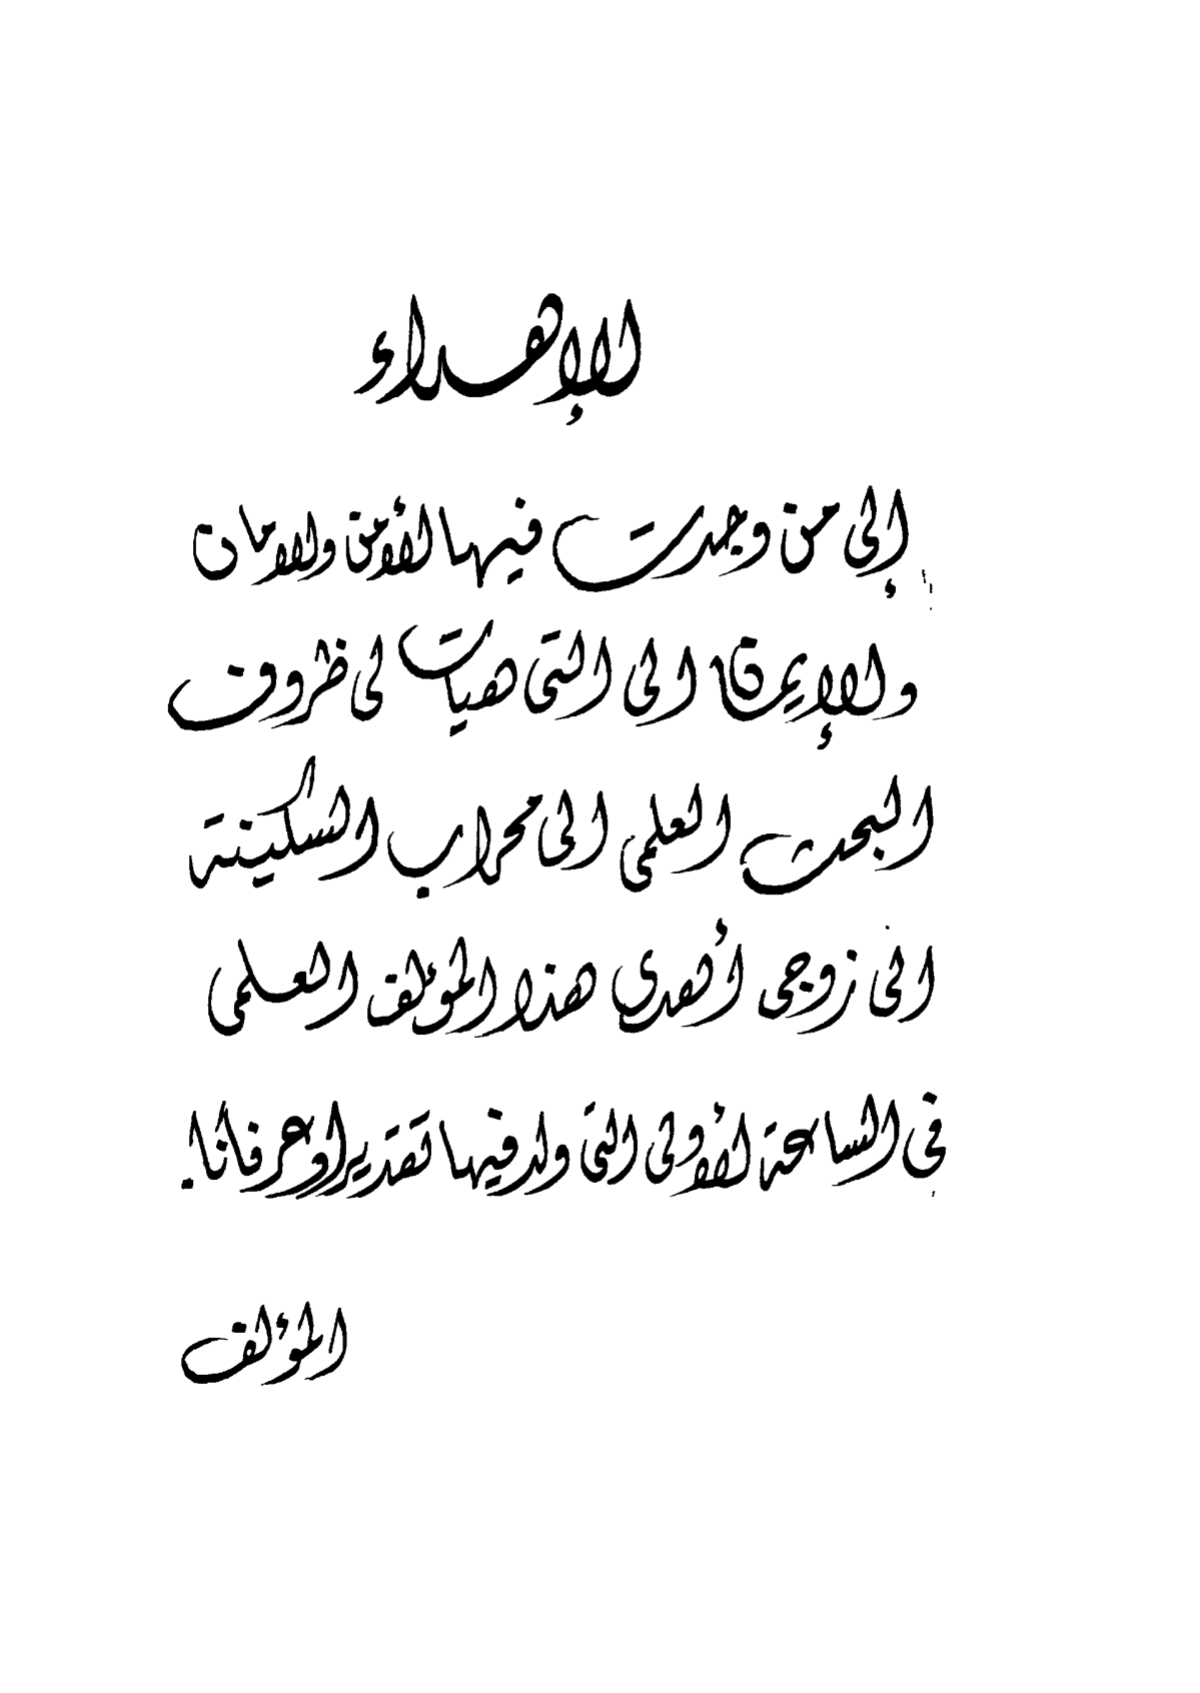 الإهداء
إلى من وجدت فيها الأمن والامان
والإيمان الى التى هيأت لى ظروف
البحث العلمى الى محراب السكينة
الى زوجى أهدي هذا المؤلف العلمى
فى الساعة الأولى التى ولد فيها تقديرا وعرفانا.
المؤلف